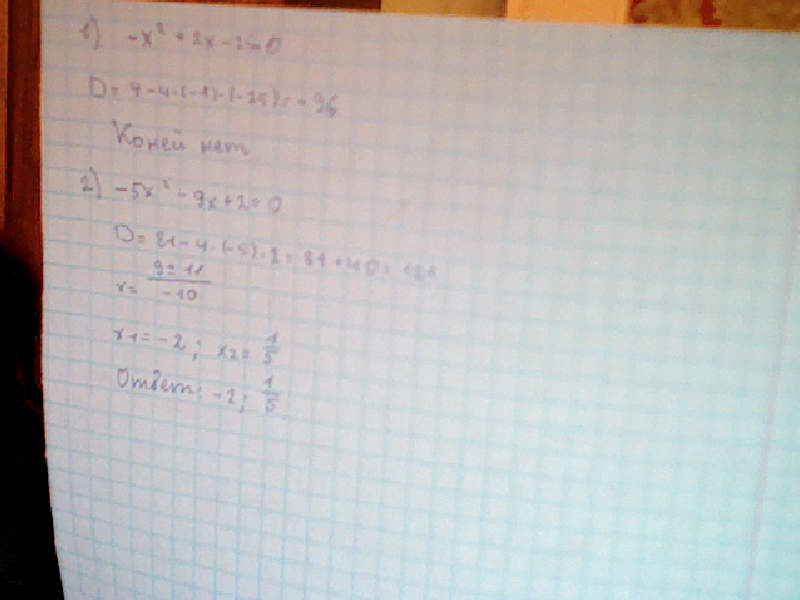 1) -x² + 2x - 25=0
D= 4-4·(-1)·(-25)= -96
Коней нет
2) -5x² - 9x+2=0
D= 81-4·(-5)·2= 81+40=121
x= 9±11/-10
x1=-2; x2= 1/5
Ответ: -2; 1/5